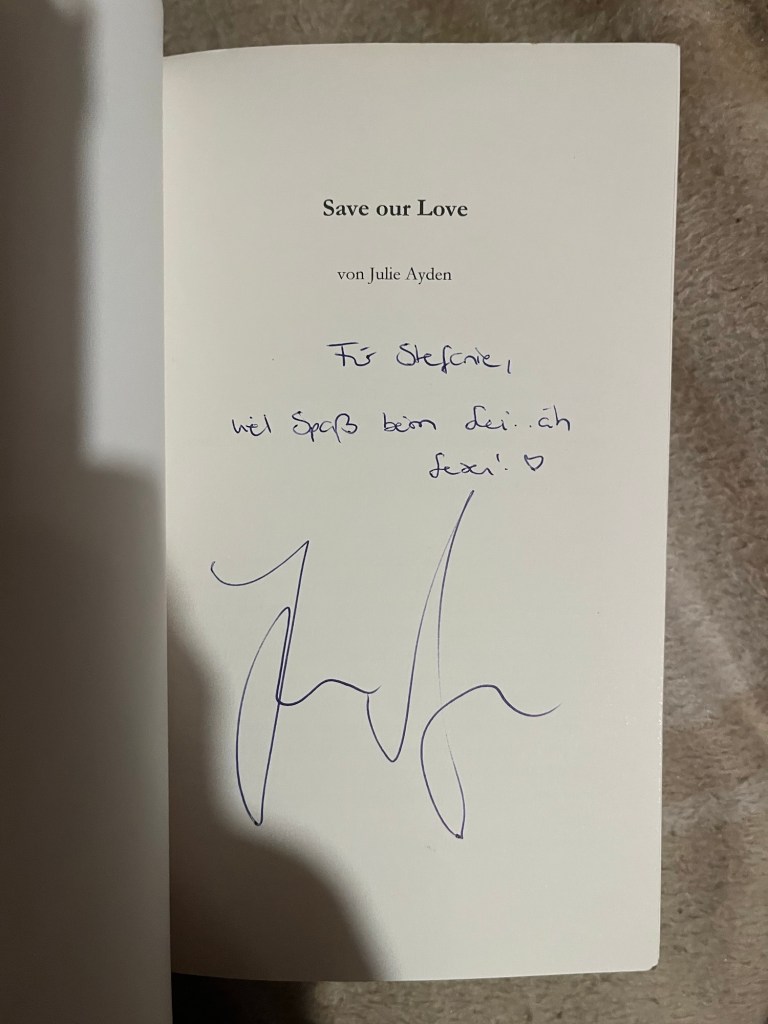 Save our Love
von Julie Ayden
Für Stefanie,
viel Spaß beim Lei...äh
Lesen! ♡